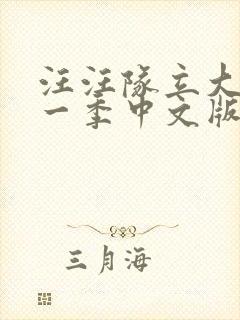 汪汪隊立大
一季中文版
三月海